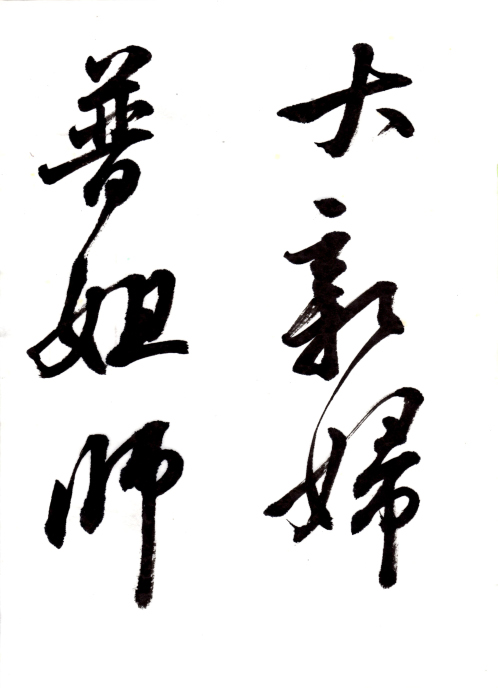 大新婦
普妲师